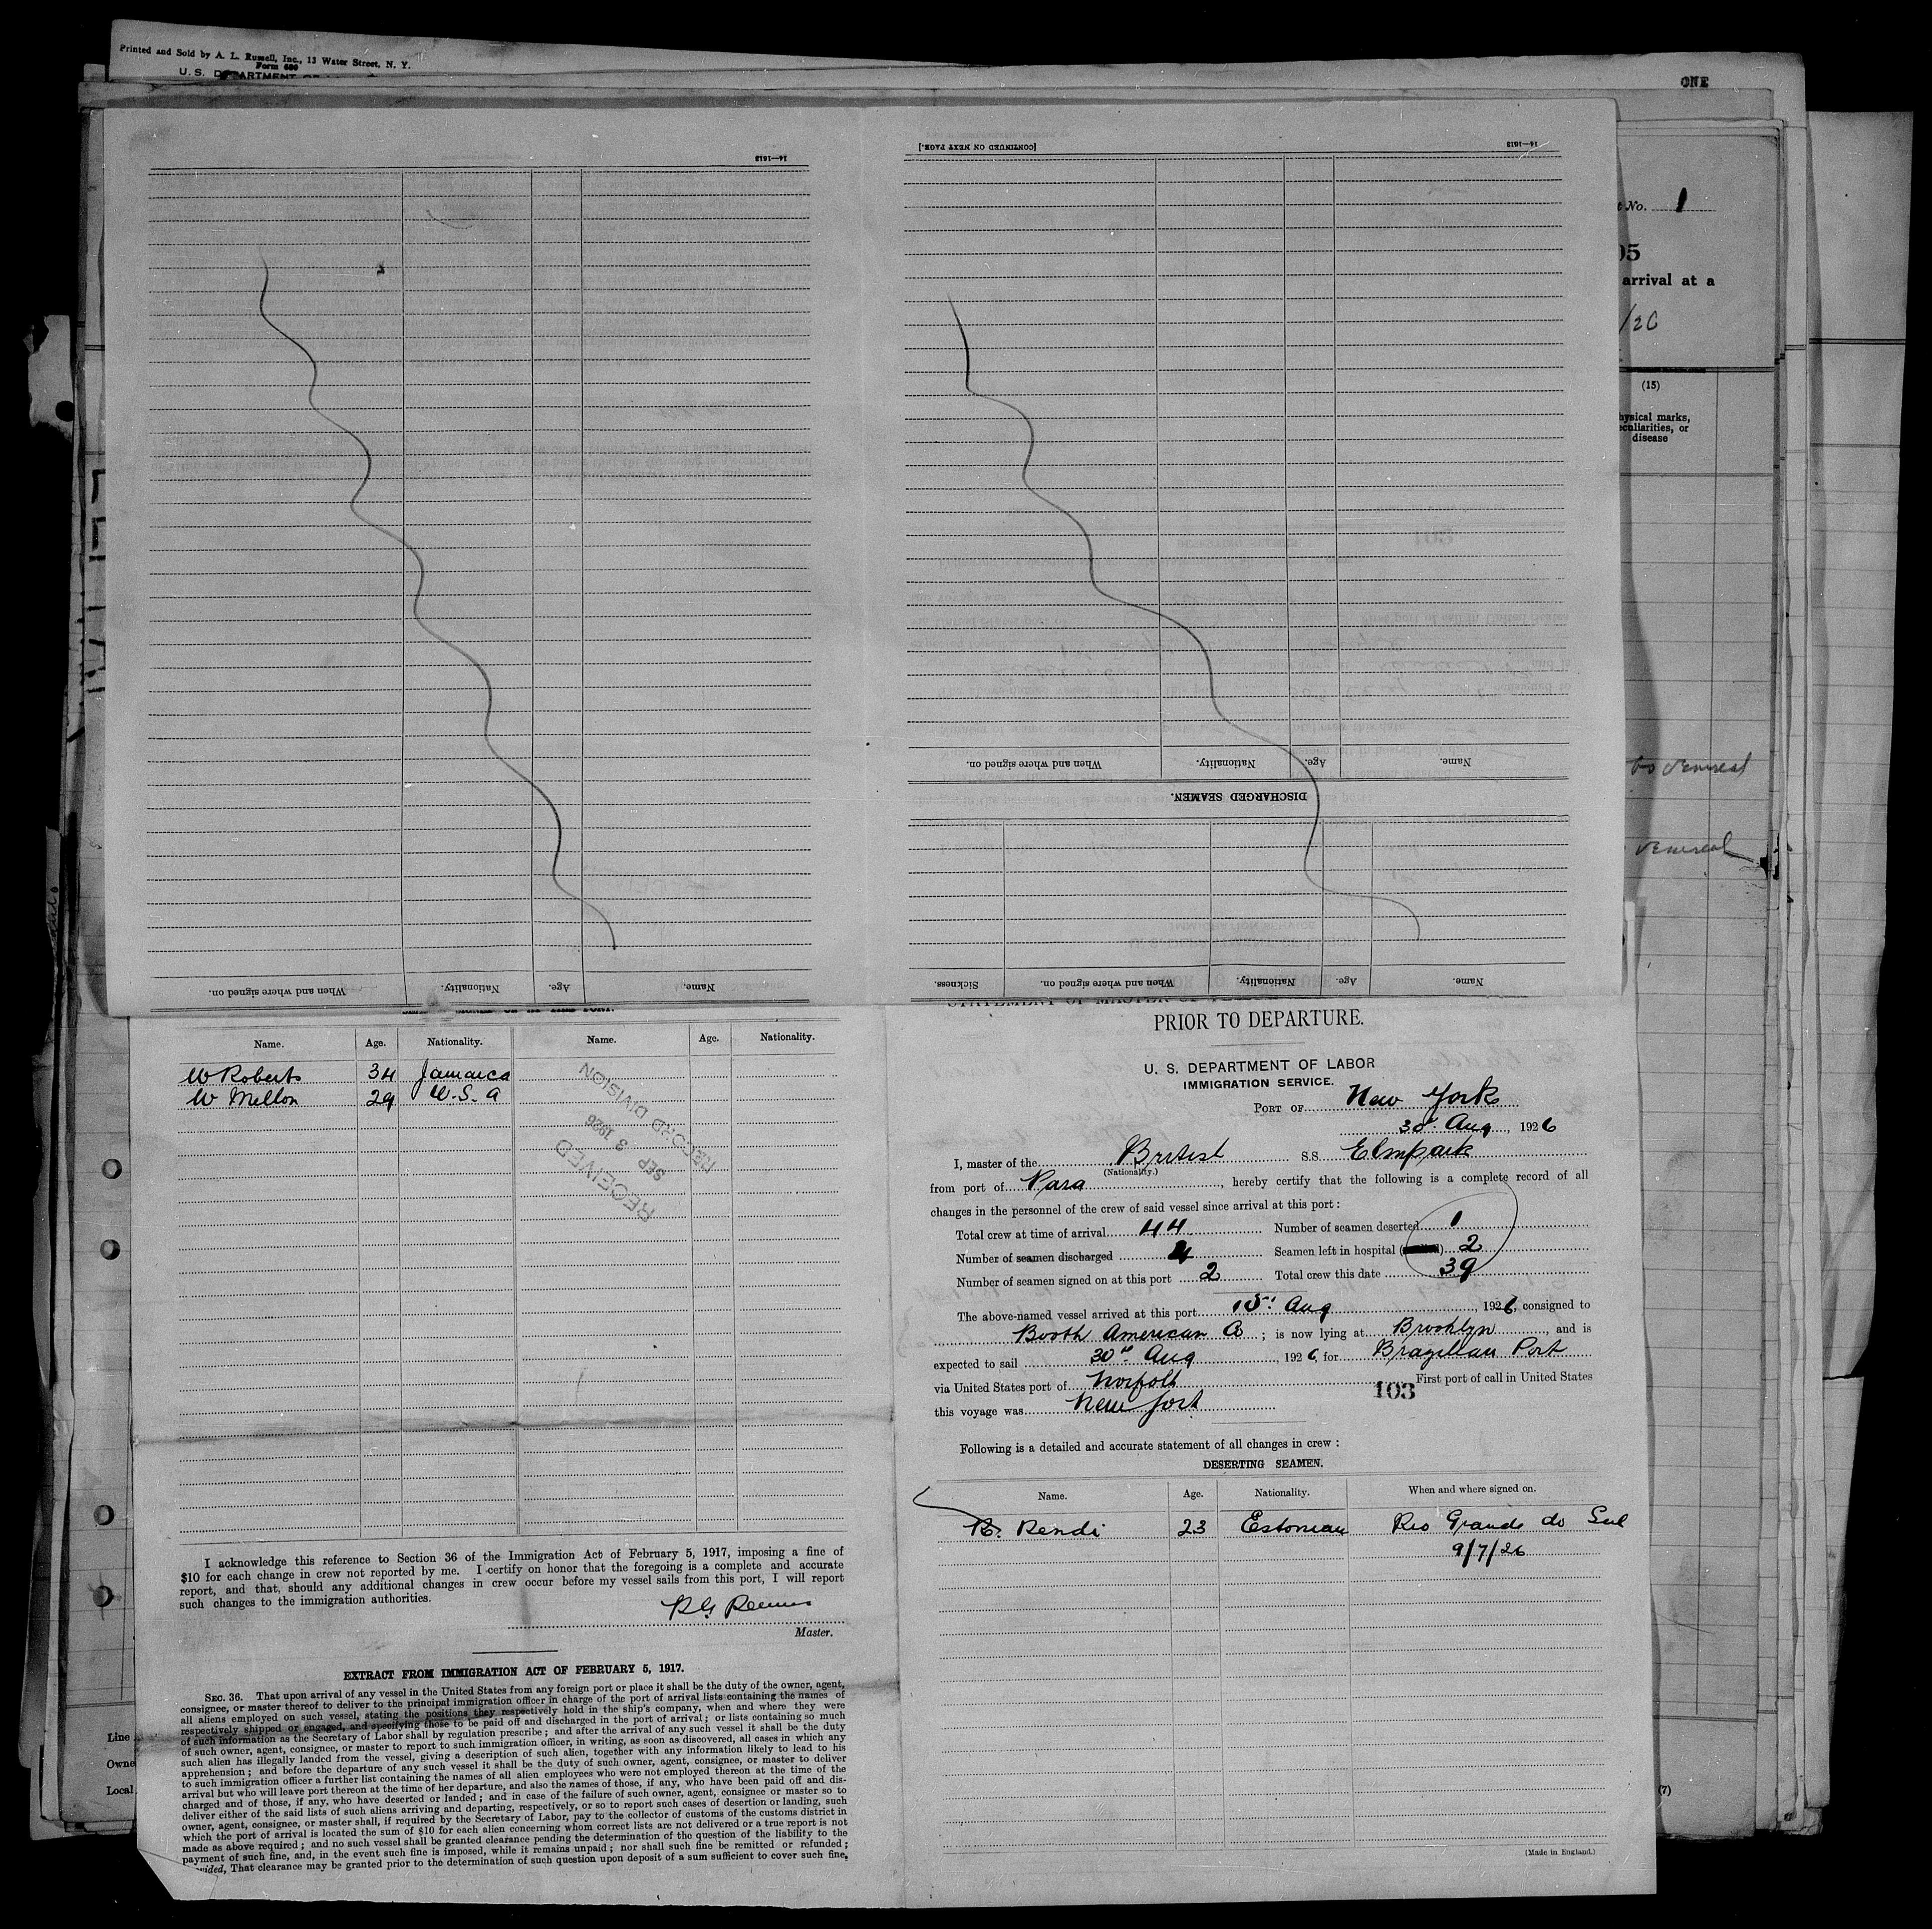 Printed and Sold by A. L. Russell, Inc., 13 Water Street, N. Y.
Form 689
U. S. DEPARTMENT OF
ONE
No. 1
95
arrival at a
/26
(15)
hysical marks,
eculiarities, or
disease
venereal
venereal
(7)
Line
Owne
Local
14—1613
When and where signed on.
Nationality.
Age.
Name.
[CONTINUED ON NEXT PAGE.]
14—1613
When and where signed on.
Nationality.
Age.
Name.
DISCHARGED SEAMEN.
Sickness.
When and where signed on.
Nationality.
Age.
Name.
Name. Age. Nationality. Name. Age. Nationality.
W Roberts 34 Jamaica
W Mellon 29 U.S.A
RECEIVED
SEP 3 1926
RECORD DIVISION
I acknowledge this reference to Section 36 of the Immigration Act of February 5, 1917, imposing a fine of
$10 for each change in crew not reported by me. I certify on honor that the foregoing is a complete and accurate
report, and that, should any additional changes in crew occur before my vessel sails from this port, I will report
such changes to the immigration authorities.
Master.
EXTRACT FROM IMMIGRATION ACT OF FEBRUARY 5, 1917.
SEC. 36. That upon arrival of any vessel in the United States from any foreign port or place it shall be the duty of the owner, agent,
consignee, or master thereof to deliver to the principal immigration officer in charge of the port of arrival lists containing the names of
all aliens employed on such vessel, stating the positions they respectively hold in the ship's company, when and where they were
respectively shipped or engaged, and specifying those to be paid off and discharged in the port of arrival; or lists containing so much
of such information as the Secretary of Labor shall by regulation prescribe; and after the arrival of any such vessel it shall be the duty
of such owner, agent, consignee, or master to report to such immigration officer, in writing, as soon as discovered, all cases in which any
such alien has illegally landed from the vessel, giving a description of such alien, together with any information likely to lead to his
apprehension; and before the departure of any such vessel it shall be the duty of such owner, agent, consignee, or master to deliver
to such immigration officer a further list containing the names of all alien employees who were not employed thereon at the time of the
arrival but who will leave port thereon at the time of her departure, and also the names of those, if any, who have been paid off and dis-
charged and of those, if any, who have deserted or landed; and in case of the failure of such owner, agent, consignee or master so to
deliver either of the said lists of such aliens arriving and departing, respectively, or so to report such cases of desertion or landing, such
owner, agent, consignee, or master shall, if required by the Secretary of Labor, pay to the collector of customs of the customs district in
which the port of arrival is located the sum of $10 for each alien concerning whom correct lists are not delivered or a true report is not
made as above required; and no such vessel shall be granted clearance pending the determination of the question of the liability to the
payment of such fine, and, in the event such fine is imposed, while it remains unpaid; nor shall such fine be remitted or refunded;
vided, That clearance may be granted prior to the determination of such question upon deposit of a sum sufficient to cover such fine,
STATEMENT OF MASTER OF
PRIOR TO DEPARTURE.
U. S. DEPARTMENT OF LABOR
IMMIGRATION SERVICE.
PORT OF New York
30 Aug, 1926
I, master of the British S.S. Elmpark
(Nationality.)
from port of Para, hereby certify that the following is a complete record of all
changes in the personnel of the crew of said vessel since arrival at this port:
Total crew at time of arrival 44 Number of seamen deserted 1
Number of seamen discharged 4 Seamen left in hospital 2
Number of seamen signed on at this port 2 Total crew this date 39
The above-named vessel arrived at this port Aug, 1926, consigned to
Booth American Co; is now lying at Brooklyn, and is
expected to sail 30th Aug, 1926, for Brazilian Port
via United States port of Norfolk First port of call in United States
103
this voyage was New York
Following is a detailed and accurate statement of all changes in crew:
DESERTING SEAMEN.
Name. Age. Nationality. When and where signed on.
Rendi 23 Estonian Rio Grande do Sul
9/7/26
(Made in England.)